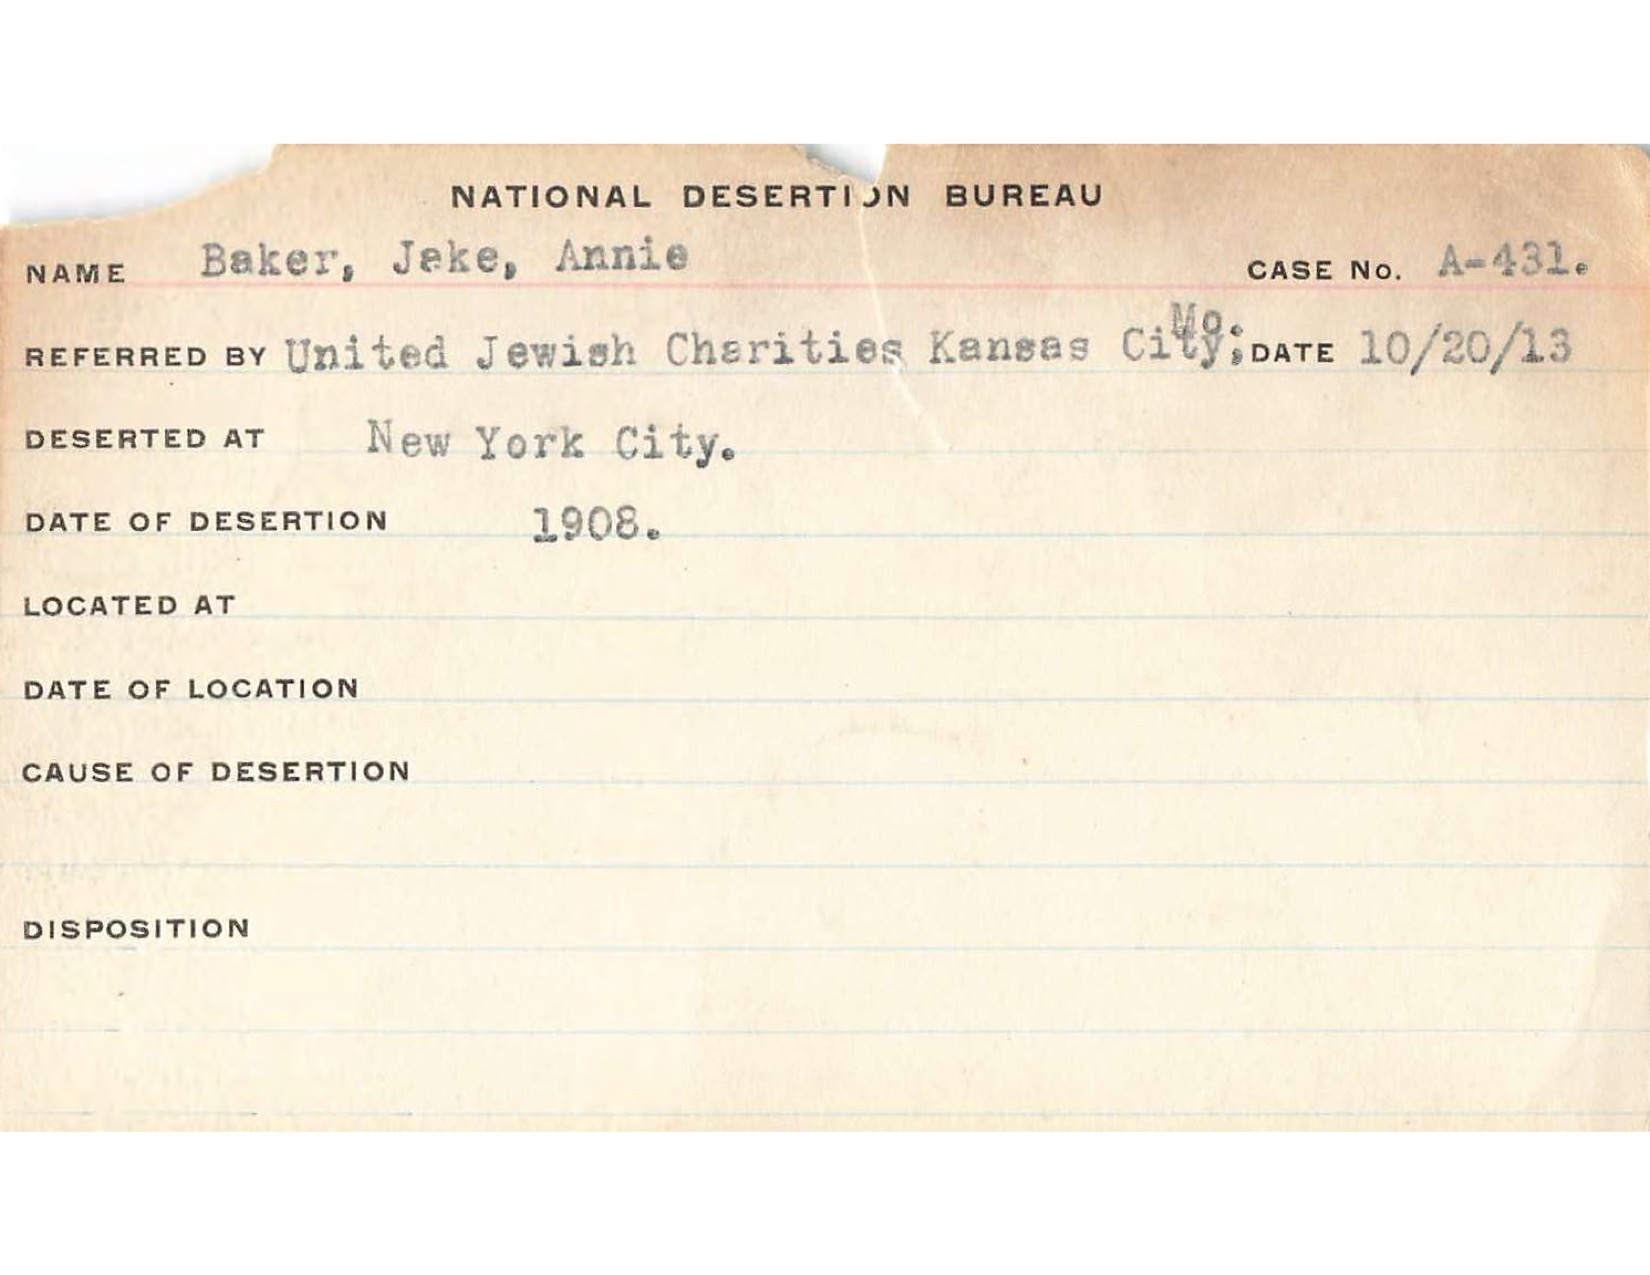 NATIONAL DESERTION BUREAU
NAME Baker, Jake, Annie CASE No. A-431.
REFERRED BY United Jewish Charities Kansas City, Mo. DATE 10/20/13
DESERTED AT New York City.
DATE OF DESERTION 1908.
LOCATED AT
DATE OF LOCATION
CAUSE OF DESERTION
DISPOSITION